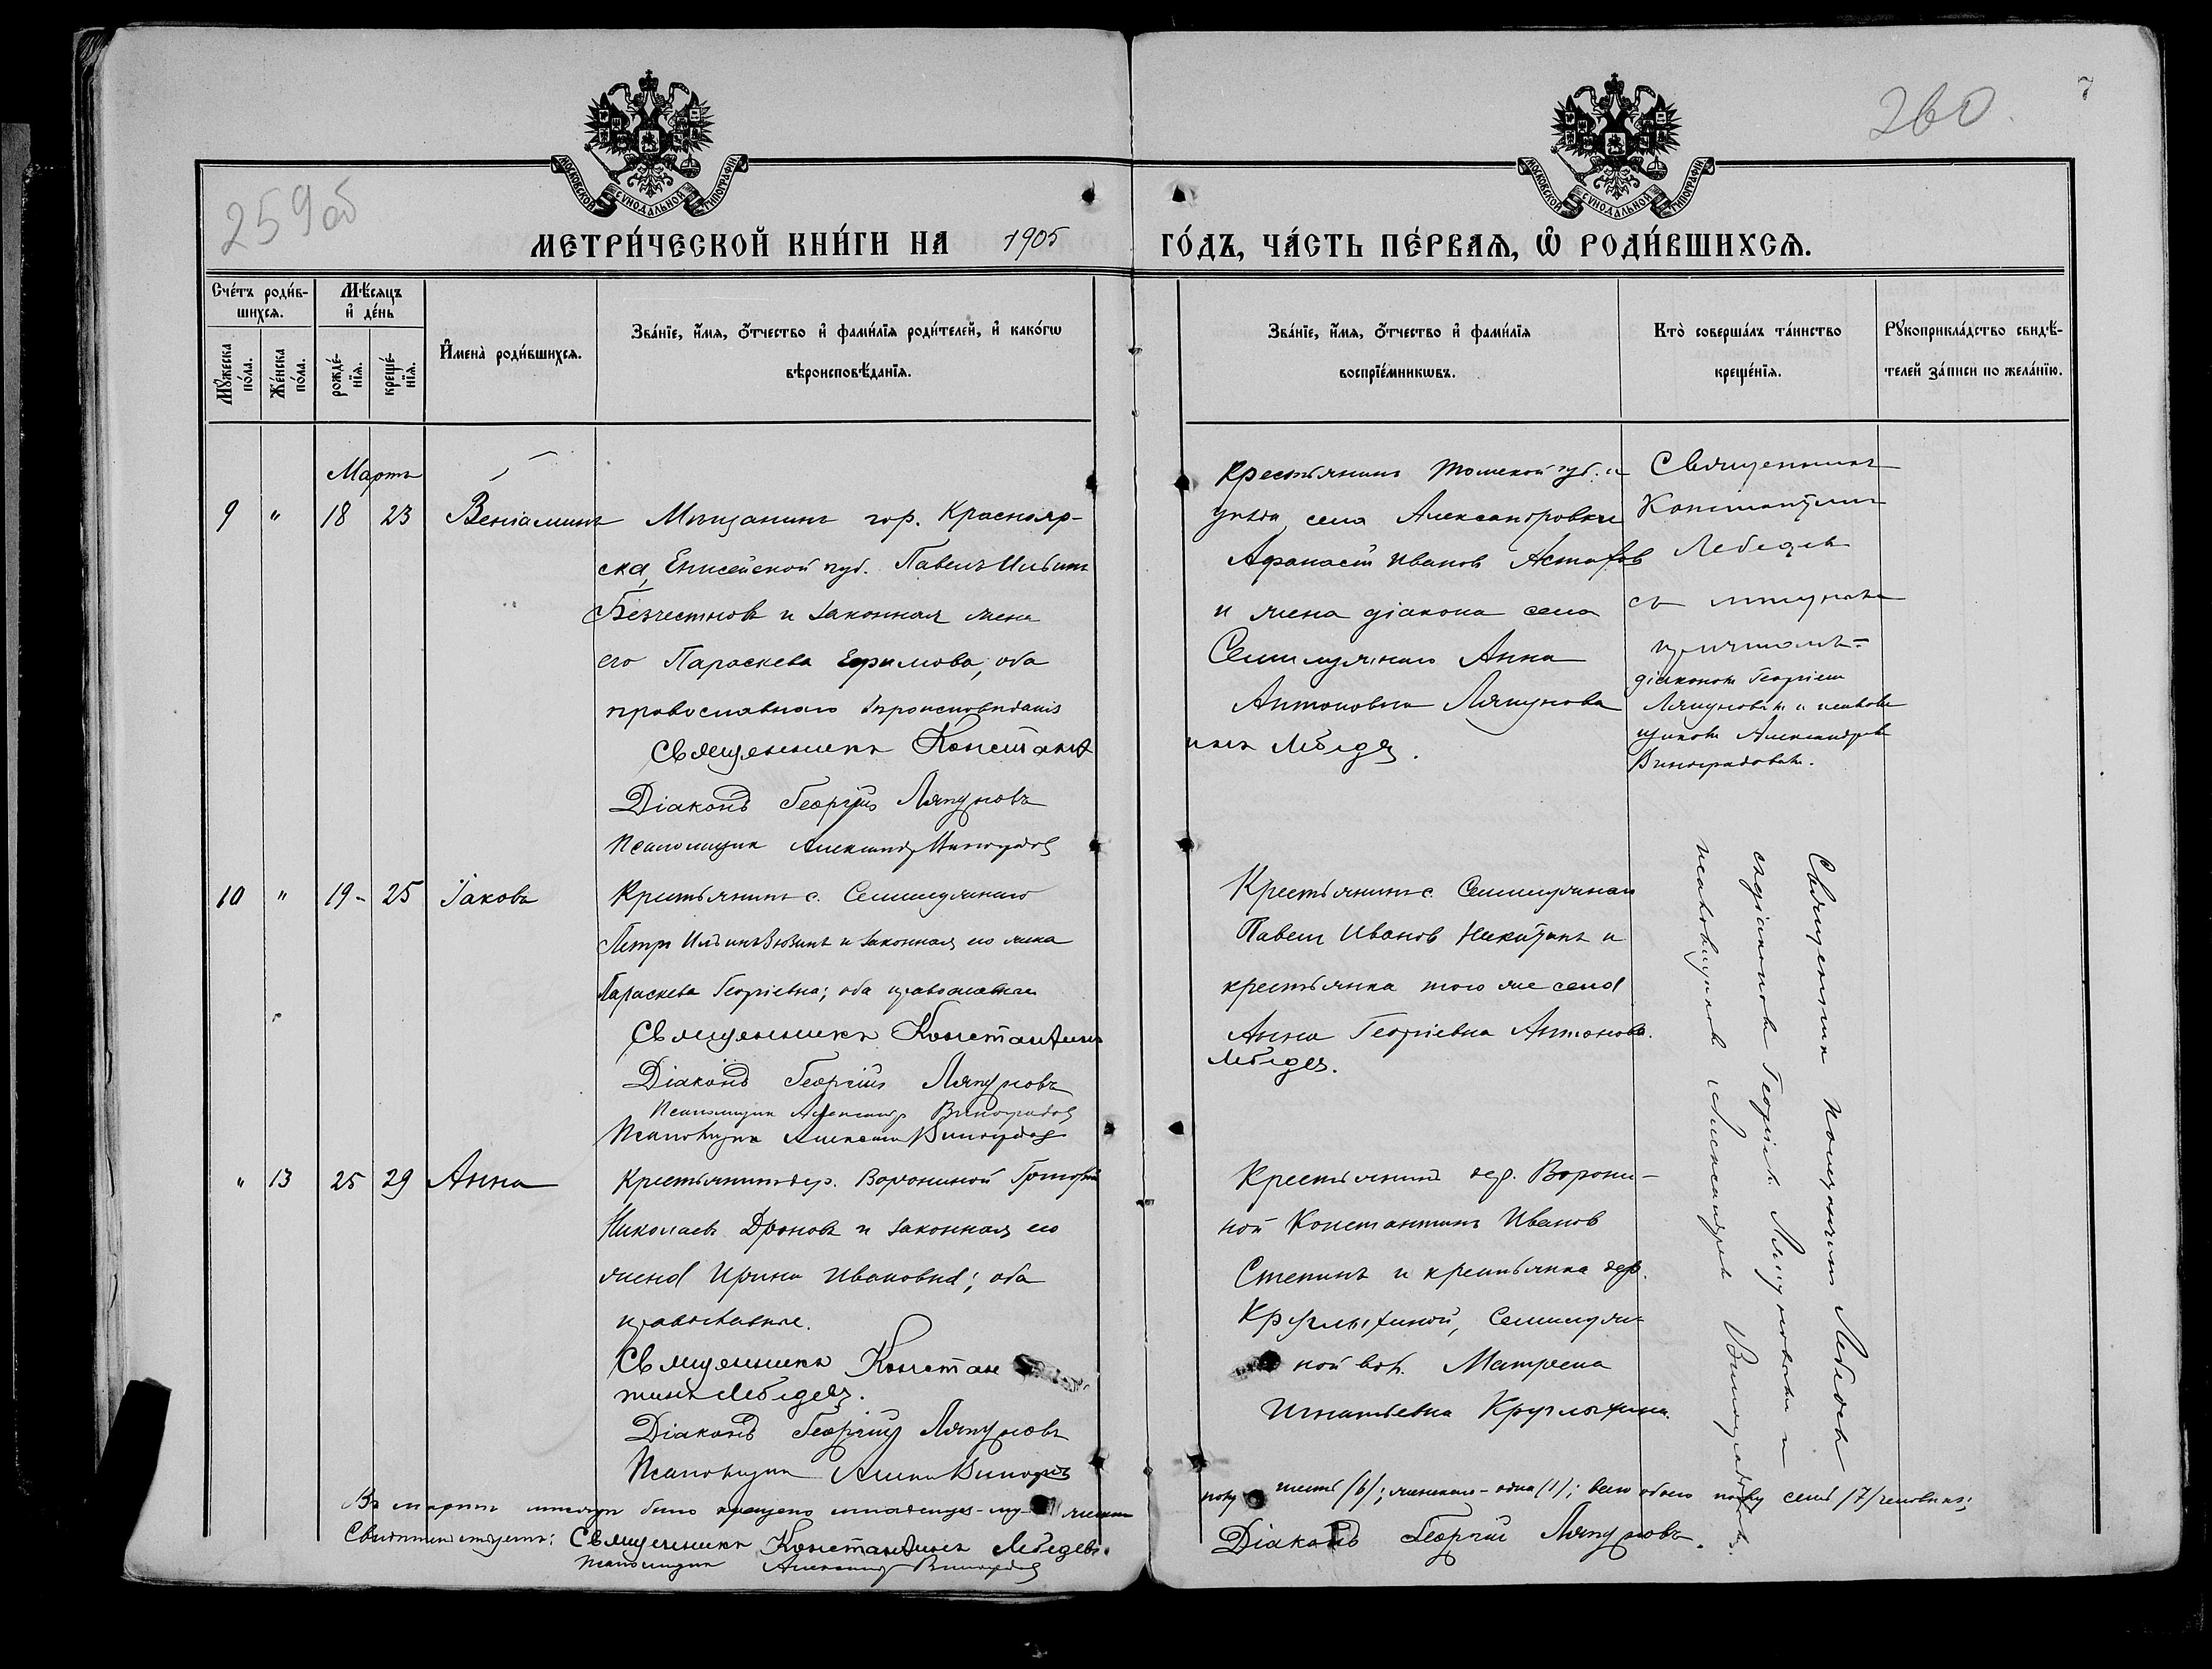 259об
260
7
МОСКОВСКОЙ СѴНОДАЛЬНОЙ ТИПОГРАФІИ
МОСКОВСКОЙ СѴНОДАЛЬНОЙ ТИПОГРАФІИ
МЕТРИ́ЧЕСКОЙ КНИ́ГИ НА 1905 ГО́ДЪ, ЧА́СТЬ ПЕ́РВАѦ, Ѡ҆ РОДИ́ВШИХСѦ.
Сче́тъ роди́в-
шихсѧ.
Мꙋ́жеска
по́ла.
Же́нска
по́ла.
Мѣ́сѧцъ
и҆ де́нь
рожде́-
нїѧ.
креще́-
нїѧ.
И҆мена̀ роди́вшихсѧ.
Зва́нїе, и҆́мѧ, ѻ҆́тчество и҆ фами́лїѧ роди́телей, и҆ како́гѡ
вѣроисповѣ́данїѧ.
Зва́нїе, и҆́мѧ, ѻ҆́тчество и҆ фами́лїѧ
воспрїе́мникѡвъ.
Кто̀ соверша́лъ та́инство
креще́нїѧ.
Рꙋкоприкла́дство свидѣ́-
телей за́писи по жела́нїю.
Мартъ
9 " 18 23 Веніаминъ
Мѣщанинъ гор. Краснояр-
ска, Енисейской губ. Павелъ Ильинъ
Безчестновъ и законная жена
его Параскева Ефимова, оба
православнаго вѣроисповѣданія
Священникъ Констант
Діаконъ Георгій Ляпуновъ
Псаломщик Александр Виноградов
Крестьянинъ Томской губ. и
уѣзда, села Александровки
Афанасій Иванов Астафов
и жена діакона села
Семилужнаго Анна
Антоновна Ляпунова
инъ Лебедев.
Священникъ
Константинъ
Лебедевъ
съ
причтомъ-
діаконом Георгіем
Ляпуновым и псалом
щиком Александром
Виноградовым.
10 " 19- 25 Іаковъ
Крестьянинъ с. Семилужнаго
Петръ Ильинъ и законная его жена
Параскева Георгіевна; оба православные
Священникъ Константинъ
Діаконъ Георгій Ляпуновъ
Псаломщик Александр Виноградов
Псаломщик Александр Виноградов
Крестьянинъ с. Семилужнаго
Павелъ Иванов Никитинъ и
крестьянка того же села
Анна Георгіевна Антонова.
Лебедев.
Священник Константин Лебедев
с діаконом Георгіем Ляпуновым и
псаломщиком Александром Виноградовым.
" 13 25 29 Анна
Крестьянинъ дер. Ворониной Григорій
Николаевъ Дроновъ и законная его
жена Ирина Ивановна; оба
православные.
Священникъ Констан
тинъ Лебедев.
Діаконъ Георгій Ляпуновъ
Псаломщик Александр Виноградов
Крестьянинъ дер. Ворони-
ной Константинъ Иванов
Степинъ и крестьянка дер.
Круглыхиной, Семилуж-
ной вол. Матрена
Игнатьевна Круглыхина.
Въ мартѣ мѣсяцѣ было крещено младенцев-му
полу шесть /6/; женского - одна /1/; всего обоего полу семь /7/ человѣкъ;
Свидѣтельствуемъ: Священникъ Константинъ Лебедевъ.
Діаконъ Георгій Ляпуновъ.
Псаломщик Александр Виноградов